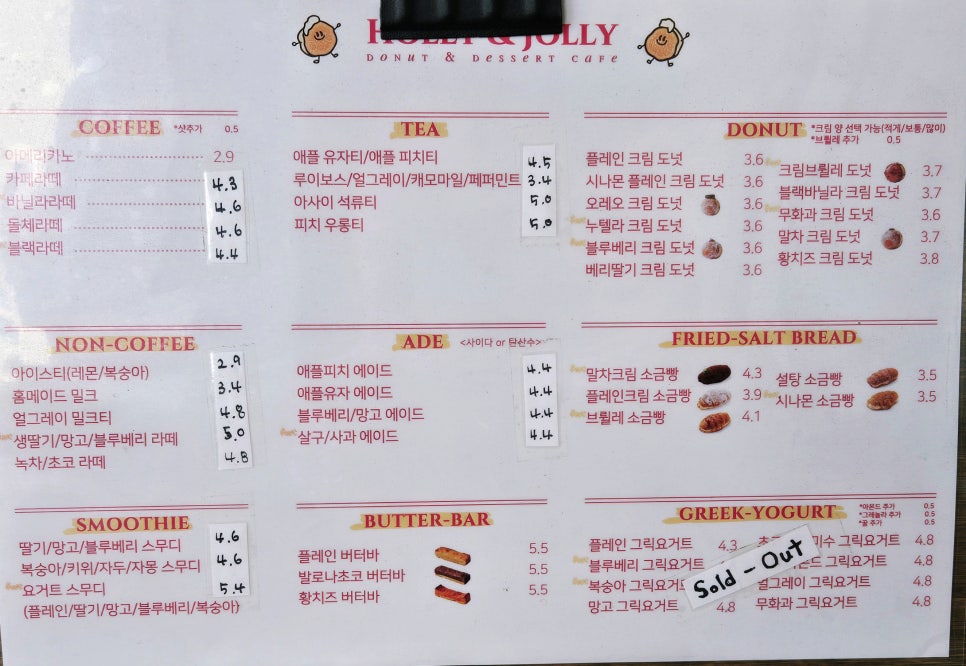 HOLLY & JOLLY
DONUT & DESSERT CAFE
COFFEE *샷추가 0.5
아메리카노 2.9
카페라떼 4.3
바닐라라떼 4.6
돌체라떼 4.6
블랙라떼 4.4
TEA
애플 유자티/애플 피치티 4.5
루이보스/얼그레이/캐모마일/페퍼민트 3.4
아사이 석류티 5.0
피치 우롱티 5.0
DONUT *크림 양 선택 가능(적게/보통/많이)
*브륄레 추가 0.5
플레인 크림 도넛 3.6
시나몬 플레인 크림 도넛 3.6
오레오 크림 도넛 3.6
누텔라 크림 도넛 3.6
블루베리 크림 도넛 3.6
베리딸기 크림 도넛 3.6
크림브륄레 도넛 3.7
블랙바닐라 크림 도넛 3.7
무화과 크림 도넛 3.6
말차 크림 도넛 3.7
황치즈 크림 도넛 3.8
NON-COFFEE
아이스티(레몬/복숭아) 2.9
홈메이드 밀크 3.4
얼그레이 밀크티 4.8
생딸기/망고/블루베리 라떼 5.0
녹차/초코 라떼 4.8
ADE <사이다 or 탄산수>
애플피치 에이드 4.4
애플유자 에이드 4.4
블루베리/망고 에이드 4.4
살구/사과 에이드 4.4
FRIED-SALT BREAD
말차크림 소금빵 4.3
플레인크림 소금빵 3.9
브륄레 소금빵 4.1
설탕 소금빵 3.5
시나몬 소금빵 3.5
SMOOTHIE
딸기/망고/블루베리 스무디 4.6
복숭아/키위/자두/자몽 스무디 4.6
요거트 스무디 5.4
(플레인/딸기/망고/블루베리/복숭아)
BUTTER-BAR
플레인 버터바 5.5
발로나초코 버터바 5.5
황치즈 버터바 5.5
GREEK-YOGURT
*아몬드 추가 0.5
*그래놀라 추가 0.5
*꿀 추가 0.5
플레인 그릭요거트 4.3
블루베리 그릭요거트
복숭아 그릭요거트
망고 그릭요거트 4.8
그릭요거트 4.8
그릭요거트 4.8
얼그레이 그릭요거트 4.8
무화과 그릭요거트 4.8
Sold - Out